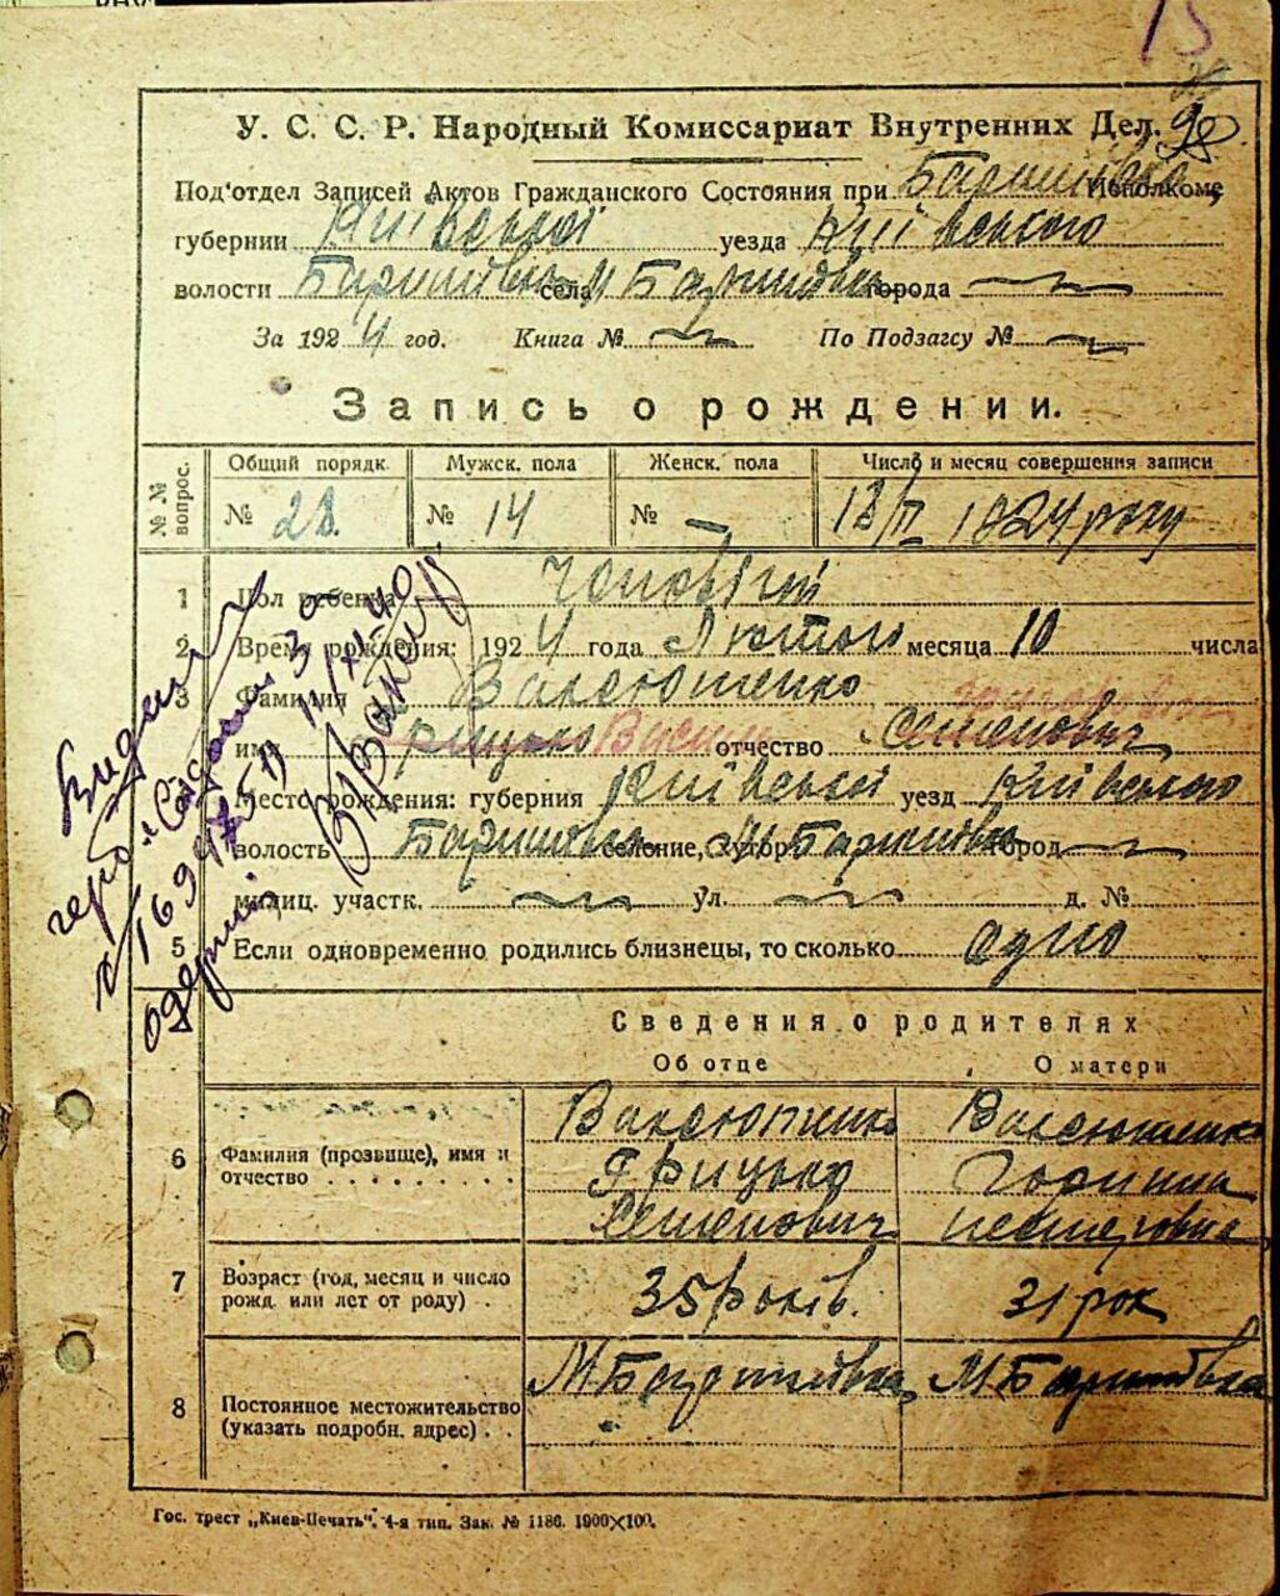 У. С. С. Р. Народный Комиссариат Внутренних Дел. 98
Под'отдел Записей Актов Гражданского Состояния при Баришівка Исполкоме
губернии Київської уезда Київського
волости Баришівка села М Баришівка города
За 1924 год. Книга № По Подзагсу №
Запись о рождении.
№ № вопрос.
Общий порядк. Мужск. пола Женск. пола Число и месяц совершения записи
№ 28. № 14 № — 18/II 1924 року
1 Пол ребенка Чоловічий
2 Время рождения: 1924 года Лютого месяца 10 числа
3 Фамилия Ваксютенко
имя Грицько Василь отчество Семенович
Место рождения: губерния Київської уезд Київського
волость Баришівка селение, хутор М Баришівка город
милиц. участк. ул. д. №
5 Если одновременно родились близнецы, то сколько одно
Сведения о родителях
Об отце О матери
6 Фамилия (прозвище), имя и отчество
Ваксютенко Ваксютенко
Грицько Горпина
Семенович Несторовна
7 Возраст (год, месяц и число рожд. или лет от роду)
35 років. 31 рок
8 Постоянное местожительство (указать подробн. адрес)
М Баришівка М Баришівка
Гос. трест „Киев-Печать". 4-я тип. Зак. № 1186. 1900×100.